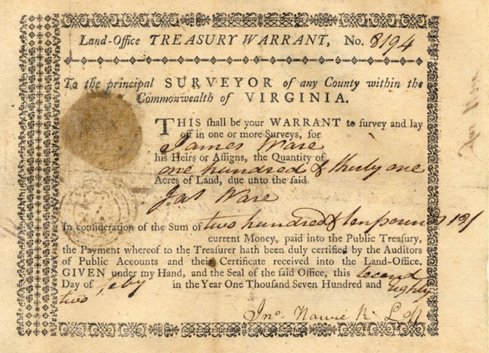 Land-Office TREASURY WARRANT, No. 8194
To the principal SURVEYOR of any County within the
Commonwealth of VIRGINIA.
THIS shall be your WARRANT to survey and lay
off in one or more Surveys, for
James Ware
his Heirs or Assigns, the Quantity of
one hundred & thirty one
Acres of Land, due unto the said
Jas Ware
In consideration of the Sum of two hundred & ten pounds
current Money, paid into the Public Treasury,
the Payment whereof to the Treasurer hath been duly certified by the Auditors
of Public Accounts and their Certificate received into the Land-Office.
GIVEN under my Hand, and the Seal of the said Office, this second
Day of feby in the Year One Thousand Seven Hundred and eighty
two
Jno.